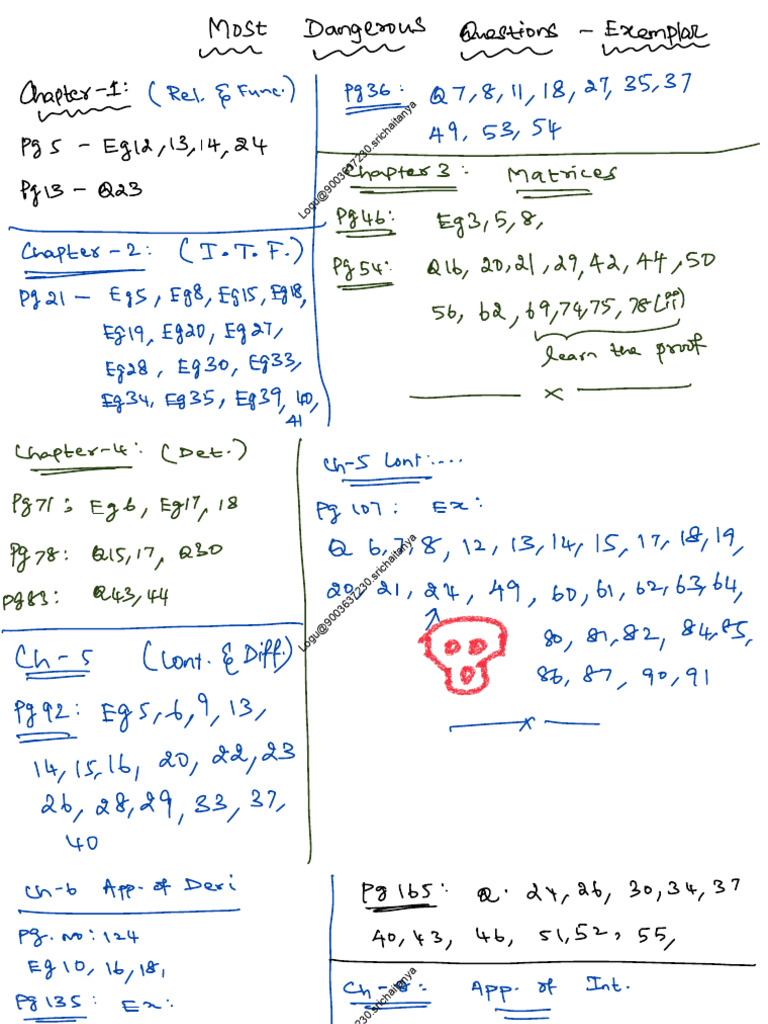 Most Dangerous Questions - Exemplar
Chapter-1: (Rel. & Func.)
Pg 5 - Eg12, 13, 14, 24
Pg13 - Q23
Chapter-2: (I.T.F.)
Pg21 - Eg5, Eg8, Eg15, Eg18,
Eg19, Eg20, Eg27,
Eg28, Eg30, Eg33,
Eg34, Eg35, Eg39, 40,
41
Pg36: Q7, 8, 11, 18, 27, 35, 37
49, 53, 54
Chapter 3: Matrices
Pg46: Eg3, 5, 8,
Pg54: Q16, 20, 21, 29, 42, 44, 50
56, 62, 69, 74, 75, 78(ii)
learn the proof
x
Logu@9003637230.srichaitanya
Chapter-4: (Det.)
Pg71: Eg6, Eg17, 18
Pg78: Q15, 17, Q30
Pg83: Q43, 44
Ch-5 (Cont. & Diff.)
Pg92: Eg5, 6, 9, 13,
14, 15, 16, 20, 22, 23
26, 28, 29, 33, 37,
40
Ch-5 Cont:....
Pg 107: Ex:
Q 6, 7, 8, 12, 13, 14, 15, 17, 18, 19,
20, 21, 24, 49, 60, 61, 62, 63, 64,
80, 81, 82, 84, 85,
86, 87, 90, 91
x
Logu@9003637230.srichaitanya
Ch-6 App. of Deri
Pg.no: 124
Eg10, 16, 18,
Pg135: Ex:
Pg165: Q. 24, 26, 30, 34, 37
40, 43, 46, 51, 52, 55,
Ch-8: App. of Int.
230.srichaitanya